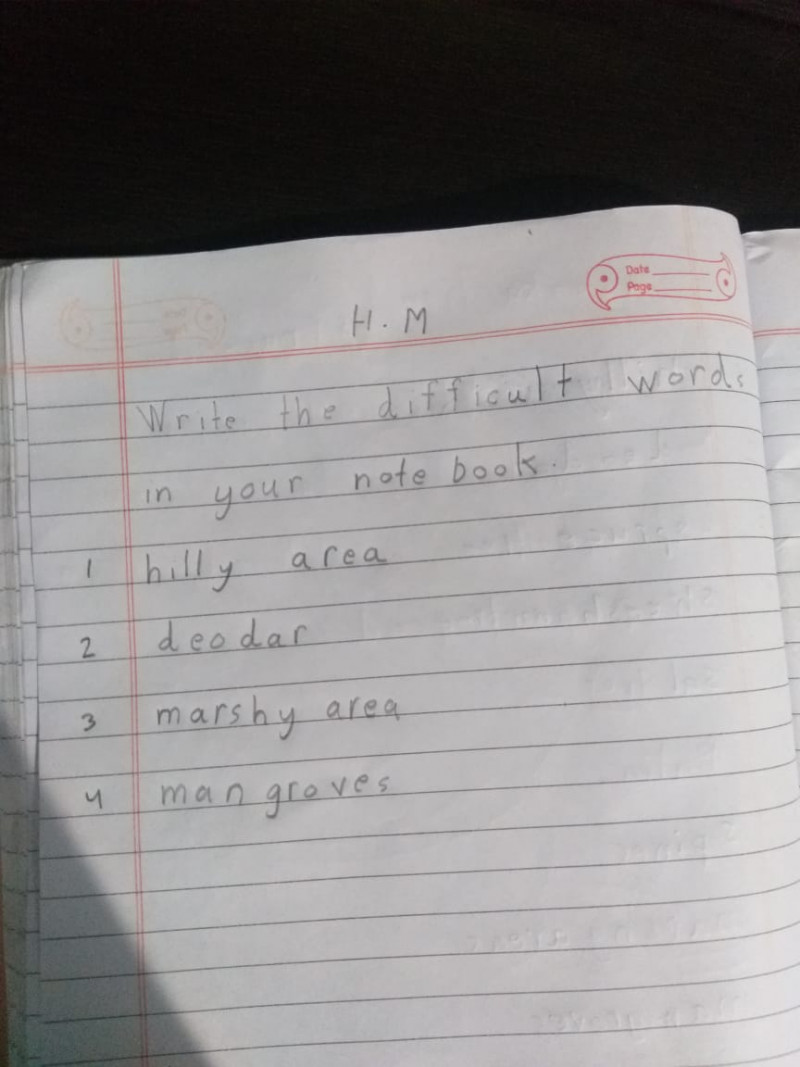 Date
Page
H.M
Write the difficult words
in your note book.
1 hilly area
2 deodar
3 marshy area
4 mangroves